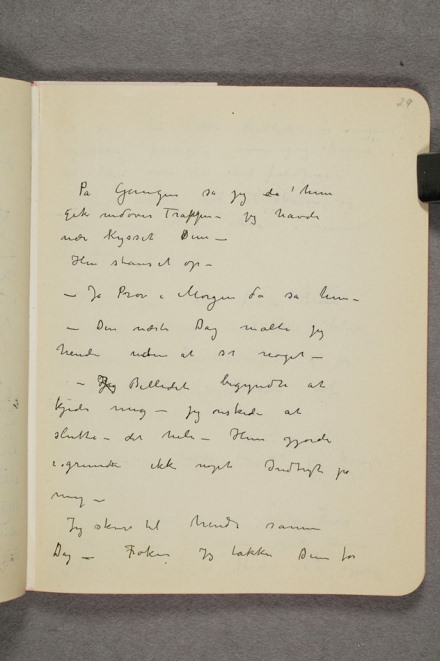 29
På Gangen sa jeg da! hun
gik nedover Trappen – jeg havde
nær kysset Dem –
Hun stanset op –
– Ja Prøv i Morgen da sa hun –
– Den næste Dag malte jeg
hende uden at si noget –
– Billedet begyndte at
kjede mig – jeg ønskede at
slutte – det hele – Hun gjorde
i grunden ikke noget Indtryk på
mig –
Jeg skrev til hende samme
Dag – Frøken Jeg takker Dem for